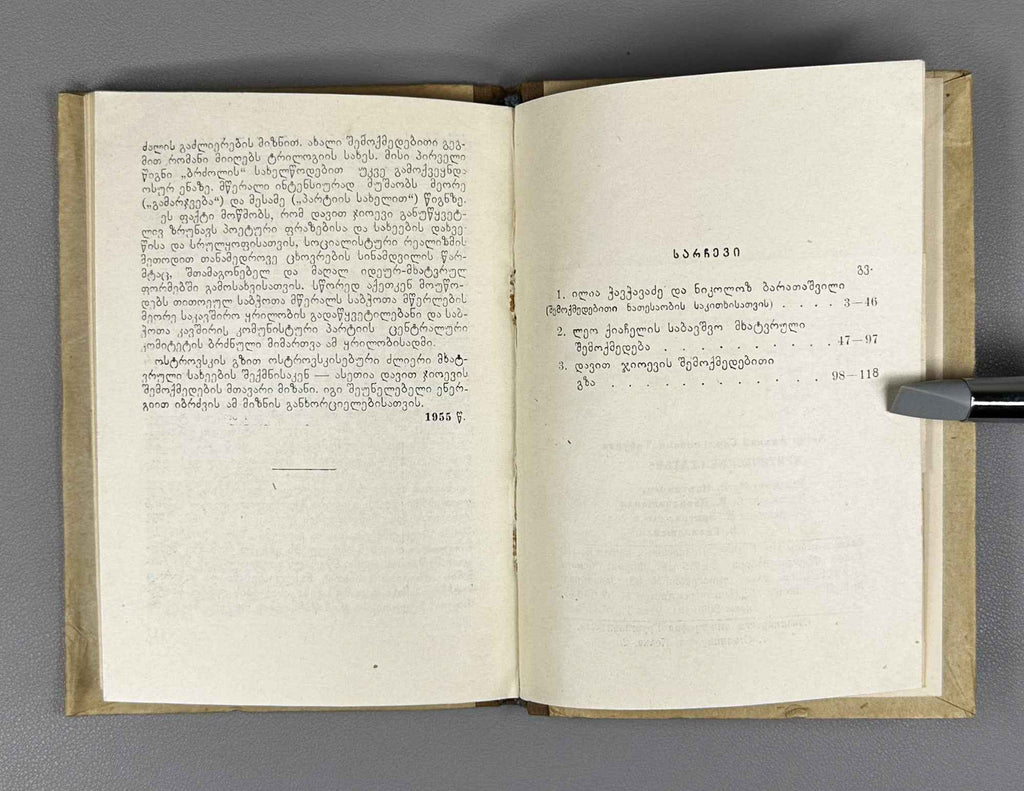 ძალის გაძლიერების მიზნით. ახალი შემოქმედებითი გეგ-
მით რომანი მიიღებს ტრილოგიის სახეს. მისი პირველი
წიგნი „ბრძოლის“ სახელწოდებით უკვე გამოქვეყნდა
ოსურ ენაზე. მწერალი ინტენსიურად მუშაობს მეორე
(„გამარჯვება“) და მესამე („პარტიის სახელით“) წიგნზე.
ეს ფაქტი მოწმობს, რომ დავით ჯიოევი განუწყვეტ-
ლივ ზრუნავს პოეტური ფრაზებისა და სახეების დახვე-
წისა და სრულყოფისათვის, სოციალისტური რეალიზმის
მეთოდით თანამედროვე ცხოვრების სინამდვილის წარ-
მტაც, შთამაგონებელ და მაღალ იდეურ-მხატვრულ
ფორმებში გამოსახვისათვის. სწორედ აქეთკენ მოუწო-
დებს თითოეულ საბჭოთა მწერალს საბჭოთა მწერლების
მეორე საკავშირო ყრილობის გადაწყვეტილებანი და საბ-
ჭოთა კავშირის კომუნისტური პარტიის ცენტრალური
კომიტეტის ბრძნული მიმართვა ამ ყრილობისადმი.
ოსტროვსკის გზით ოსტროვსკისებური ძლიერი მხატ-
ვრული სახეების შექმნისაკენ — ასეთია დავით ჯიოევის
შემოქმედების მთავარი მიზანი. იგი შეუნელებელი ენერ-
გიით იბრძვის ამ მიზნის განხორციელებისათვის.
1955 წ.
სარჩევი
გვ.
1. ილია ჭავჭავაძე და ნიკოლოზ ბარათაშვილი
(შემოქმედებითი ნათესაობის საკითხისათვის) . . . . 3—46
2. ლეო ქიაჩელის საბავშვო მხატვრული
შემოქმედება . . . . . . . . . . 47—97
3. დავით ჯიოევის შემოქმედებითი
გზა . . . . . . . . . . . . . 98—118